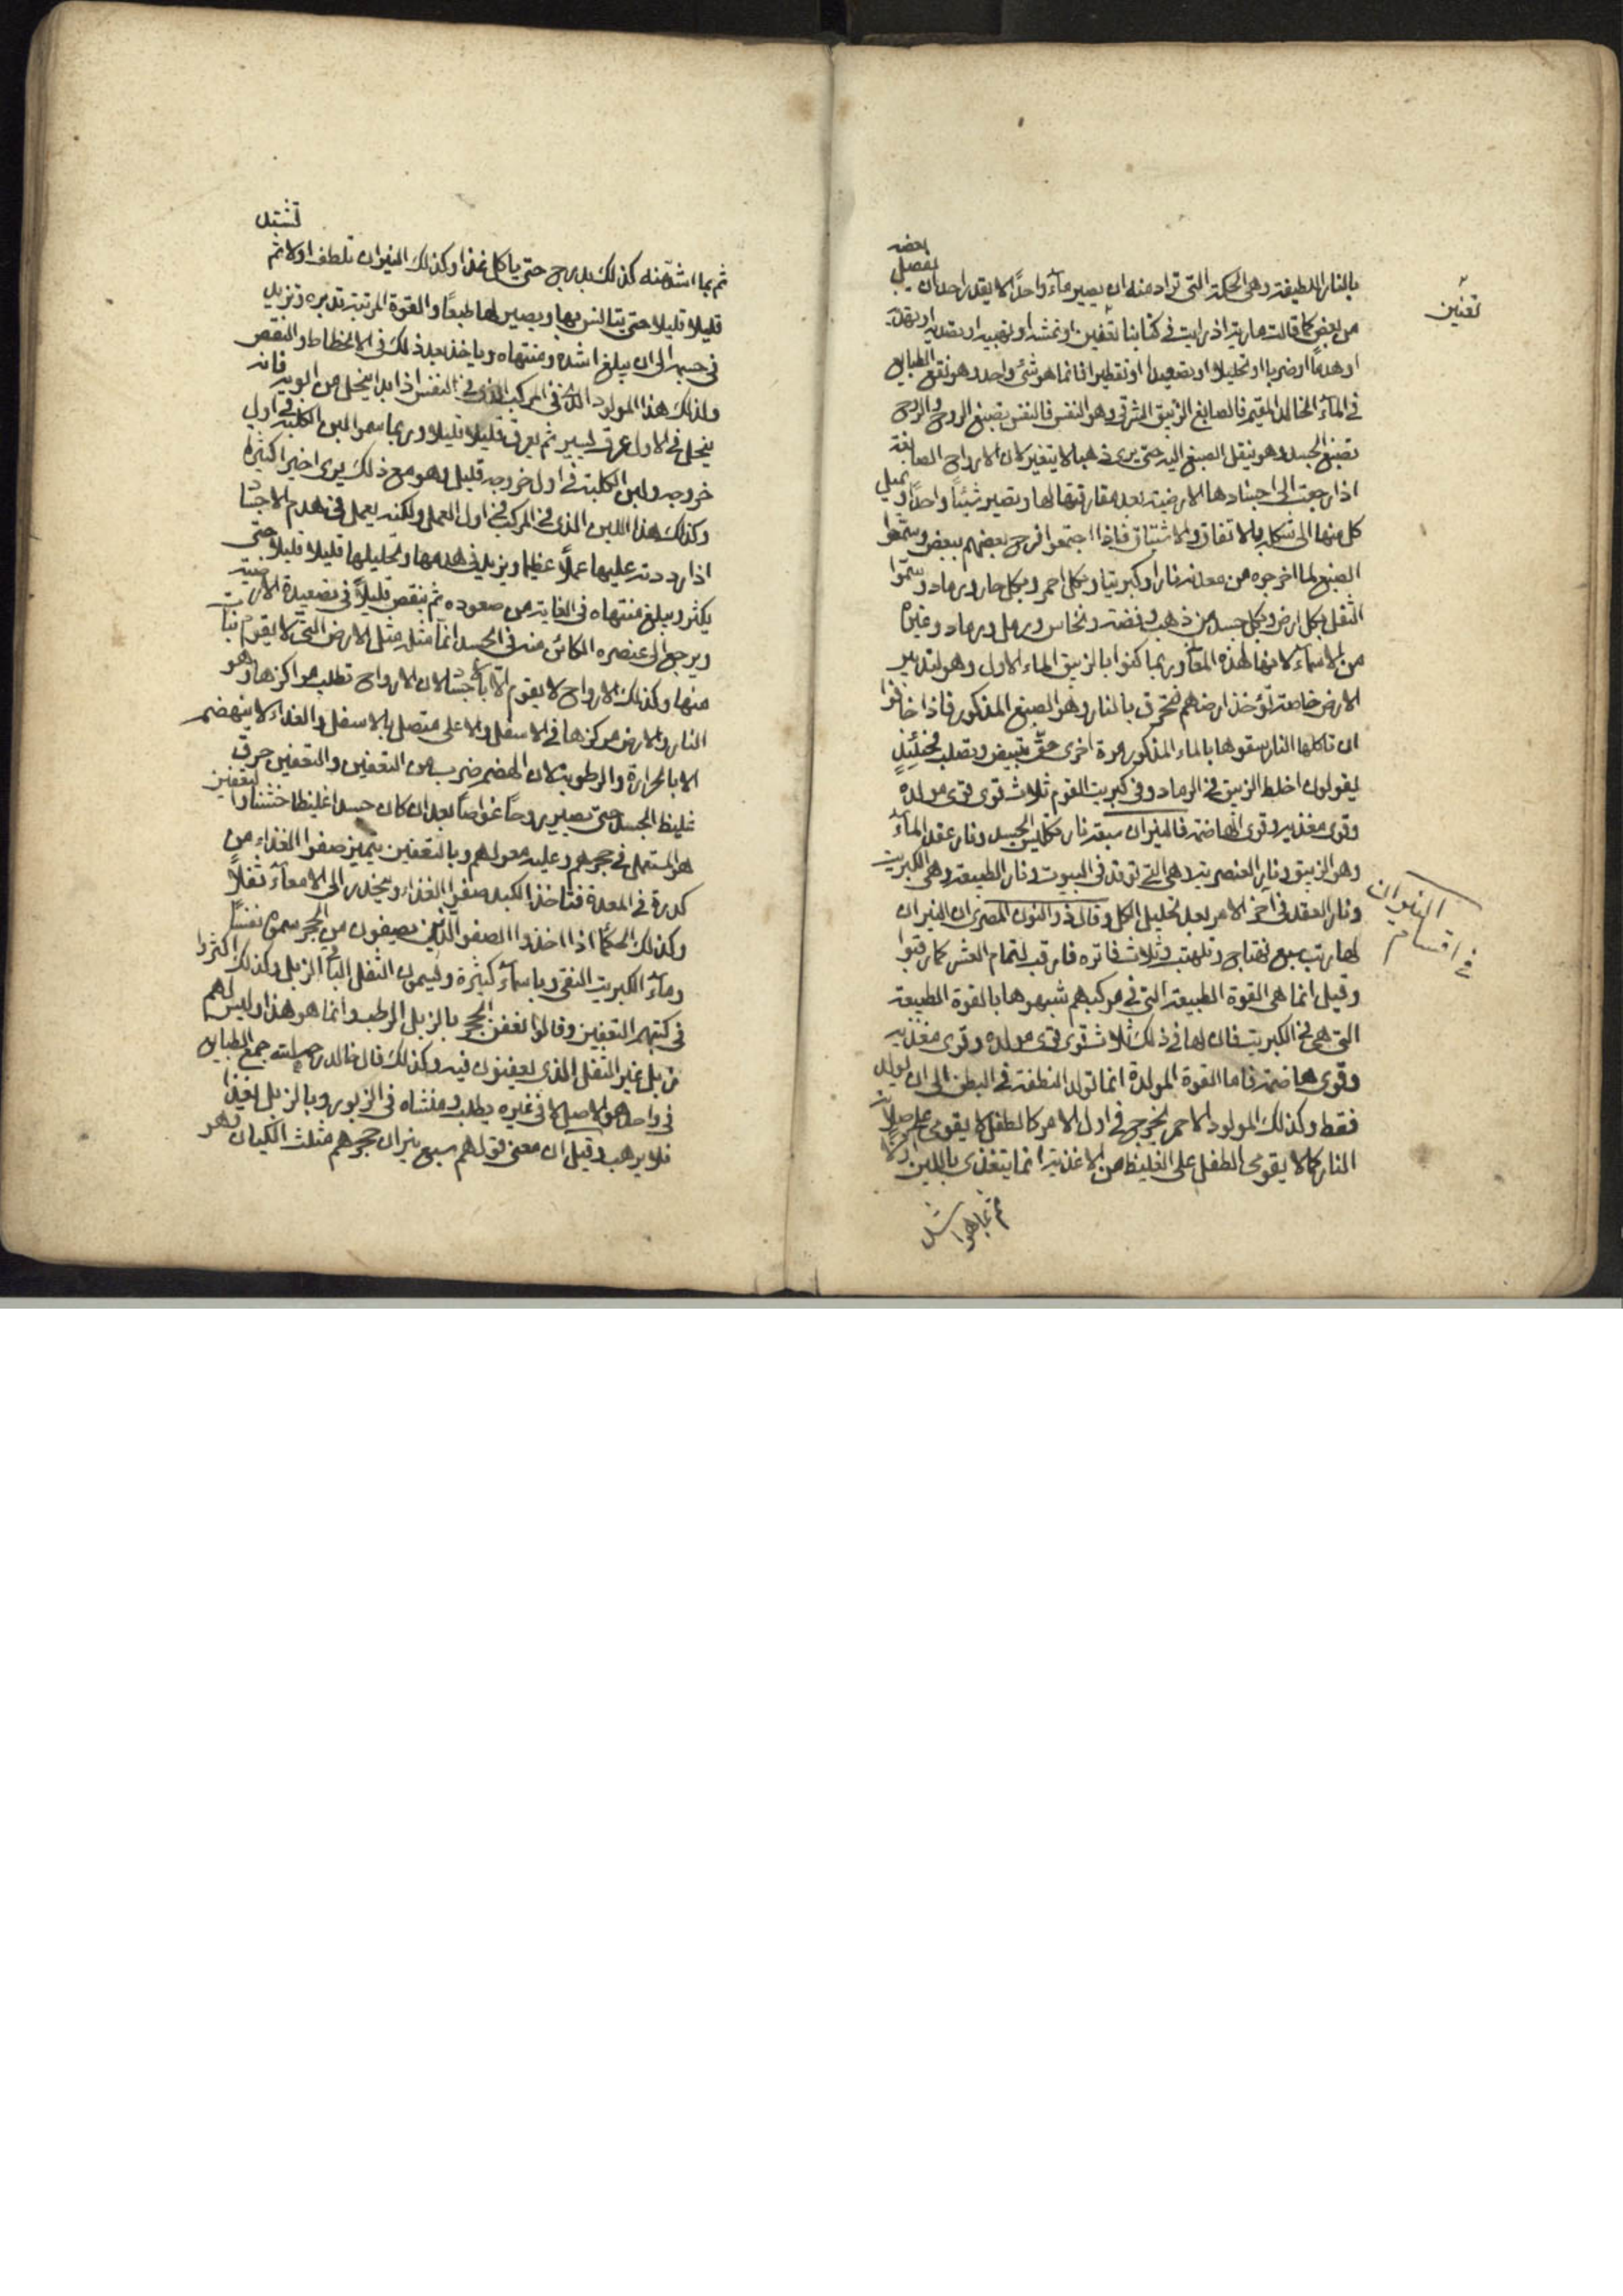 بعضه
بالنار اللطيفة وهى الحكمة التى تراد منه ان يصير ماء واحدًا لا يقدر احد ان يفصل
من بعض كما قالت مارية اذ رايت فى كتابنا تعفين او نمش او تهبية او تصدية
تعنين
او هدما او ضربا او تحليلا او تصعيدا او تقطيرا فانما هو شئ واحد وهو نقع الطبايع
فى الماء الخالد المقيم فالصابغ الزيبق المشرقى وهو النفس فالنفس تصبغ الروح والروح
تصبغ الجسد وهو ينقل الصبغ اليه حتى يرى ذهبا لا يتغير لان الارواح الصابغة
اذا رجعت الى اجسادها الارضية بعد مفارقتها لها وتصير شيئًا واحدًا ويميل
كل منها الى شكله بالاتفاق والاشتياق فاذا اجتمعوا فرح بعضهم ببعض وسموا
الصبغ لما اخرجوه من معدنه نارا وكبريتا وبكل احمر وبكل حار ورماد وسموا
الثفل بكل ارض وبكل جسد من ذهب وفضة ونحاس ورمل ورماد وغيره
من الاسماء لانها لهذه المعانى وربما كنوا بالزيبق الماء الاول وهو لتدبير
الارض خاصة تؤخذ ارضهم فتحرق بالنار وهو الصبغ المذكور فاذا خافوا
ان تاكلها النار سقوها بالماء المذكور مرة اخرى حتى تبيض وتصلب فحينئذٍ
يقولون اخلط الزيبق فى الرماد وفى كبريت القوم ثلاث قوى قوى مولدة
وقوى مغذية وقوى الهاضمة فالنيران سبعة نار تكليس الجسد ونار عقد الماء
وهو الزيبق ونار العنصرية وهى التى توقد فى البيوت ونار الطبيعة وهى الكبريت
فى اقسام النيران
ونار العقد فى آخر الامر بعد تحليل الكل وقال ذو النون المصرى ان النيران
لها رتب سبع تهتاج وتلهب وثلاث فاتره فارقب لتمام العشر كما رقبوا
وقيل انما هى القوة الطبيعة التى فى مركبهم شبهوها بالقوة الطبيعة
التى هى فى الكبريت فان لها فى ذلك ثلاث قوى قوى مولدة وقوى مغذية
وقوى هاضمة فاما القوة المولدة انما تولد النطفة فى البطن الى ان يولد
فقط وكذلك المولود الاحمر يخرج فى اول الامر كالطفل لا يقوى على صلابة
النار كما لا يقوى الطفل على الغليظ من الاغذية انما يتغذى باللبن اولًا
ثم بما هو اشد
تشتد
ثم بما اشد منه كذلك بدرج حتى ياكل غذا وكذلك النيران تلطف اولا ثم
قليلا قليلا حتى يتانس بها ويصير لها طبعًا والقوة المرتبة تدبره وتزيد
فى جسمه الى ان يبلغ اشده ومنتهاه وياخذ بعد ذلك فى الانحطاط والنقص
ولذلك هذا المولود الذى فى المركب الذى فى النفس اذا بدا ينحل من البوية فانه
ينحل فى الاول عرق يسير ثم يعرق قليلا قليلا وربما سموا لبن الكلبة فى اول
خروجه ولبن الكلبة فى اول خروجه قليل وهو مع ذلك يرى اخيرا كثيرة
وكذلك هذا اللبن الذى فى المركب فى اول العمل ولكنه يعمل فى هدم الاجساد
اذا رددته عليها عملًا عظيما ويزيد فى هدمها وتحليلها قليلا قليلا حتى
يكثر ويبلغ منتهاه فى الغاية من صعوده ثم ينقص قليلًا فى تصعيدة الارضية
ويرجع الى عنصره الكائن منه فى الجسد انما مثله مثل الارض التى لا يقوم نبات
منها وكذلك الارواح لا يقوم الا باجساد لان الارواح تطلب مراكزها وهو
النار والارض مركزها فى الاسفل والاعلى متصل بالاسفل والغداء لا ينهضم
الا بالحرارة والرطوبة لان الهضم ضرب من التعفين والتعفين حرق
غليظ الجسد حتى تصييره روحًا غواصًا بعد ان كان جسدا غليظا خشنا والتعفين
هو المستعمل فى حجرهم وعليه معولهم وبالتعفين يتميز صفوا الغذاء من
كدرة فى المعدة فتاخذ الكبد صفو الغذاء وينحدر الى الامعاء ثفلًا
وكذلك الحكما اذا اخذوا الصفو الذين يصيفون من الحجر سموه نفسًا
وماء الكبريت النقى وباسماء كثيرة ويسمون الثفل الباقى الزبل وكذلك اكثروا
فى كتبهم التعفين وقالوا نعفن الحجر بالزبل الرطب وانما هو هذا وليس لهم
زبل غير الثفل الذى يعفنون فيه وكذلك قال خالد رحمه الله جمع الطبايع
فى واحد هو الاصل لا فى غيره يطلب ومنشاه فى الزبور وبالزبل يغيذا
فلا يرهب وقيل ان معنى قولهم سبع نيران حجرهم مثلث الكيان وهو